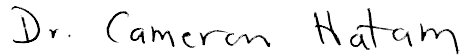 Dr. Cameron Hatam